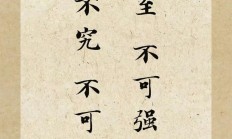 至 不可强
不究 不可